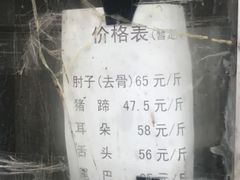 价格表(暂定
肘子(去骨)65 元/斤
猪 蹄 47.5 元/斤
耳 朵 58 元/斤
舌 头 56 元/斤
尾 巴 65 元/斤